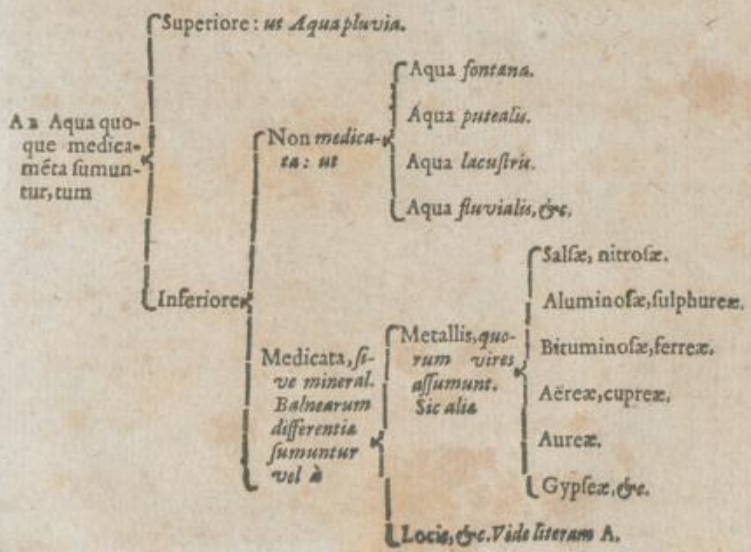 Superiore: ut Aqua pluvia.
AB Aqua quo-
que medica-
mēta ſumun-
tur, tum
Inferiore
Non medica-
ta: ut
Aqua fontana.
Aqua putealis.
Aqua lacuſtris.
Aqua fluvialis, &c.
Medicata, ſi-
ve mineral.
Balnearum
differentiæ
ſumuntur
vel à
Metallis, quo-
rum vires
aſſumunt.
Sic aliæ
Salſæ, nitroſæ.
Aluminoſæ, ſulphureæ.
Bituminoſæ, ferreæ.
Aëreæ, cupreæ.
Aureæ.
Gypſeæ, &c.
Locis, &c. Vide literam A.